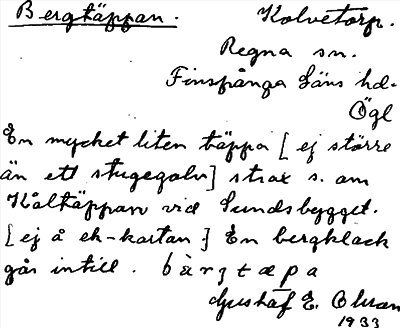 Bergtäppan. Kolvetorp.
Regna sn.
Finspånga Läns hd.
Ögl
En mycket liten täppa [ej större
än ett stugegolv] strax s. om
Kåltäppan vid Sundsbygget.
[ej å ek-kartan.] En bergklack
går intill. bàrgtæpa
Gustaf E. Olsson
1933